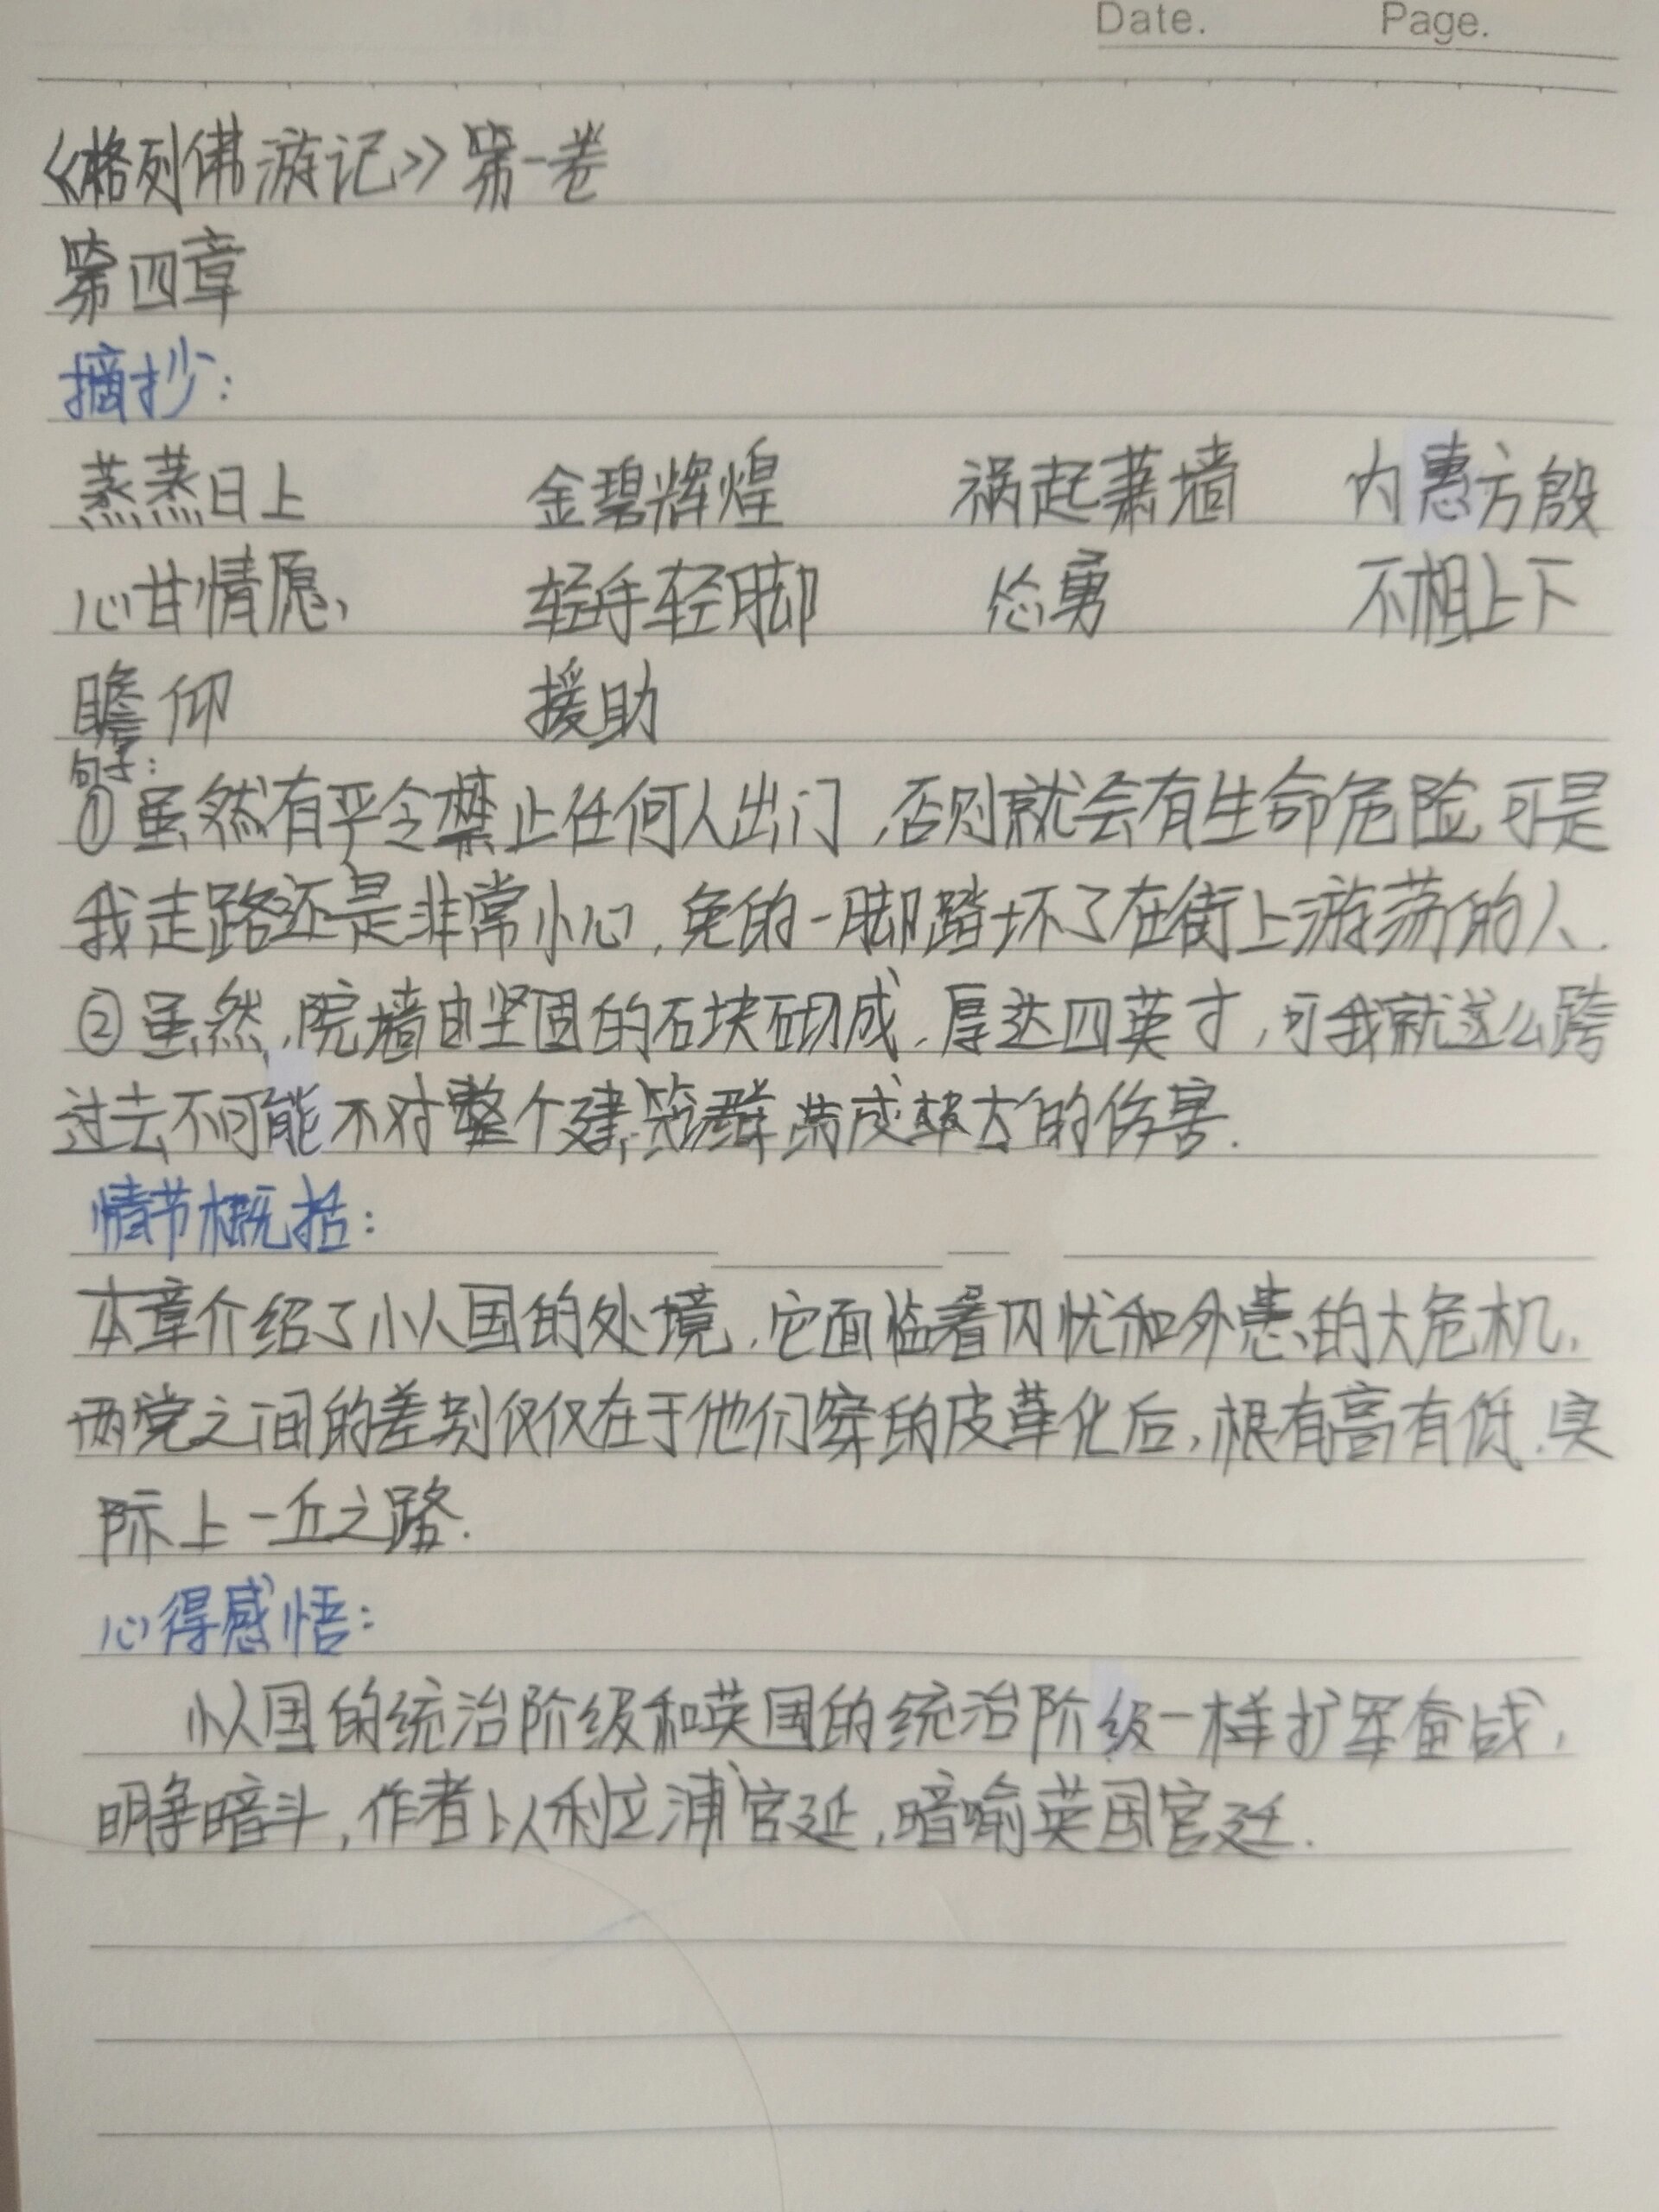 Date. Page.
《格列佛游记》第一卷
第四章
摘抄：
蒸蒸日上 金碧辉煌 祸起萧墙 内惠方殷
心甘情愿、 轻手轻脚 怂勇 不相上下
瞻仰 援助
句子：
①虽然有严令禁止任何人出门，否则就会有生命危险，可是
我走路还是非常小心，免的一脚踏坏了在街上游荡的人.
②虽然，院墙由坚固的石块砌成，厚达四英寸，可我就这么跨
过去不可能不对整个建筑群造成较大的伤害.
情节概括：
本章介绍了小人国的处境，它面临着内忧和外患的大危机，
两党之间的差别仅仅在于他们穿的皮革化后，根有高有低，实
际上一丘之路.
心得感悟：
小人国的统治阶级和英国的统治阶级一样扩军奋战，
明争暗斗，作者以利立浦官延，暗喻英国官廷.